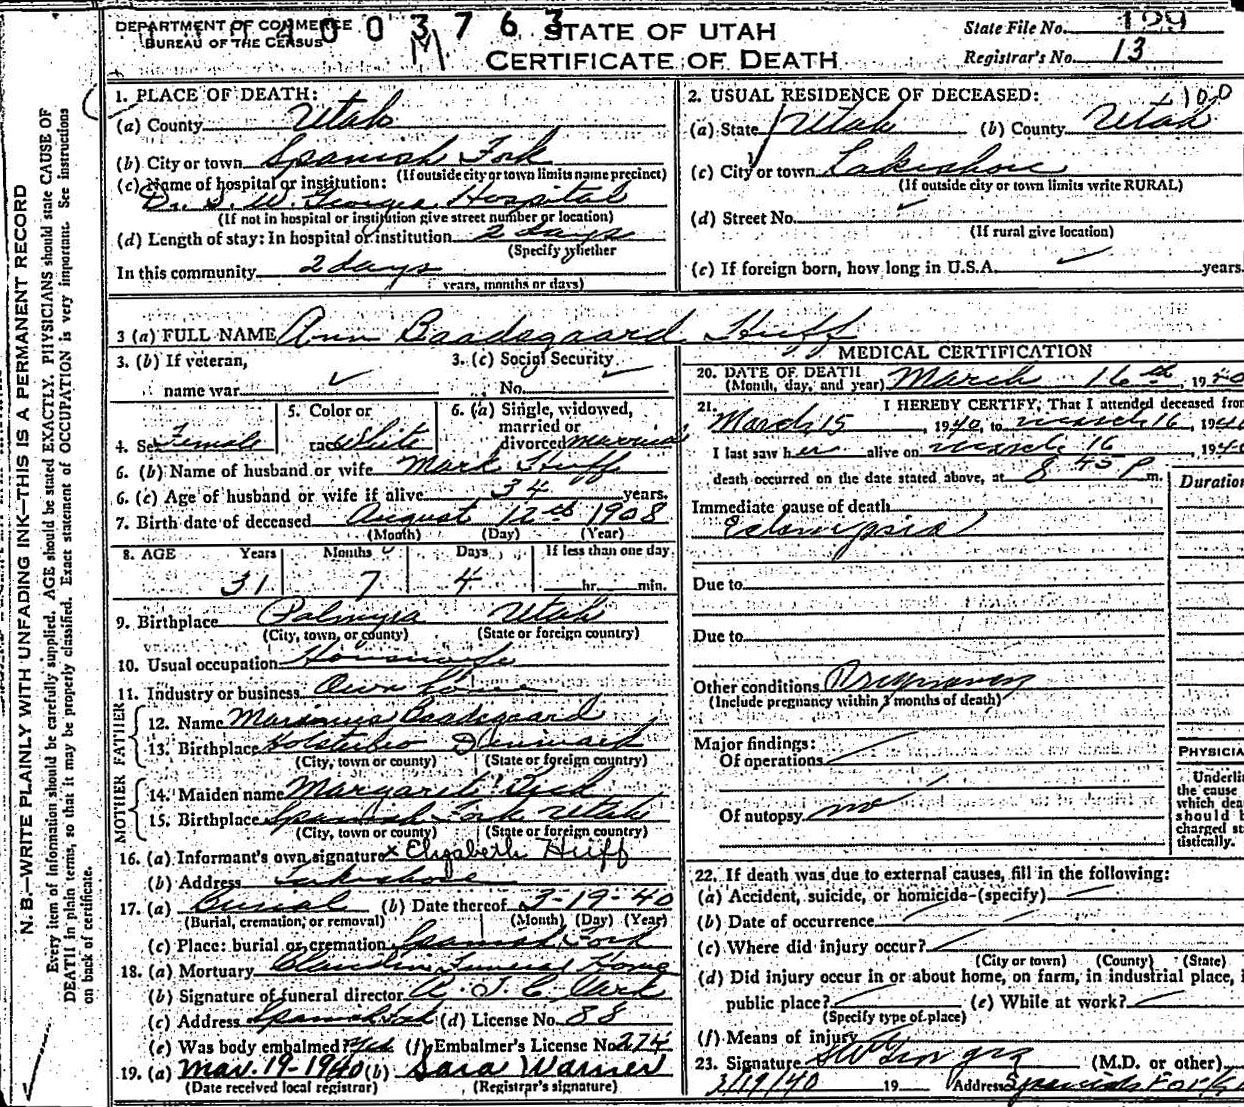 DEPARTMENT OF COMMERCE
BUREAU OF THE CENSUS
003763
STATE OF UTAH
CERTIFICATE OF DEATH
State File No. 129
Registrar's No. 13
N. B.—WRITE PLAINLY WITH UNFADING INK—THIS IS A PERMANENT RECORD
Every item of information should be carefully supplied. AGE should be stated EXACTLY. PHYSICIANS should state CAUSE OF
DEATH in plain terms, so that it may be properly classified. Exact statement of OCCUPATION is very important. See instructions
on back of certificate.
1. PLACE OF DEATH:
(a) County Utah
(b) City or town Spanish Fork
(If outside city or town limits name precinct)
(c) Name of hospital or institution:
Dr. S. W. Georges Hospital
(If not in hospital or institution give street number or location)
(d) Length of stay: In hospital or institution 2 days
(Specify whether
In this community 2 days
years, months or days)
2. USUAL RESIDENCE OF DECEASED: 100
(a) State Utah (b) County Utah
(c) City or town Lakeshore
(If outside city or town limits write RURAL)
(d) Street No.
(If rural give location)
(e) If foreign born, how long in U.S.A. years.
3 (a) FULL NAME Ann Baadsgaard Huff
3. (b) If veteran,
name war
3. (c) Social Security
No.
4. Sex Female
5. Color or
race White
6. (a) Single, widowed,
married or
divorced married
6. (b) Name of husband or wife Mark Huff
6. (c) Age of husband or wife if alive 34 years.
7. Birth date of deceased August 12th 1908
(Month) (Day) (Year)
8. AGE Years Months Days If less than one day
31 7 4 hr. min.
9. Birthplace Palmyra Utah
(City, town, or county) (State or foreign country)
10. Usual occupation Housewife
11. Industry or business Own home
FATHER
12. Name Marinus Baadsgaard
13. Birthplace Holsterbro Denmark
(City, town or county) (State or foreign country)
MOTHER
14. Maiden name Margaret
15. Birthplace Spanish Fork Utah
(City, town or county) (State or foreign country)
16. (a) Informant's own signature x Elizabeth Huff
(b) Address Lakeshore
17. (a) Burial (b) Date thereof 3-19-40
(Burial, cremation, or removal) (Month) (Day) (Year)
(c) Place: burial or cremation Spanish Fork
18. (a) Mortuary Claudin Funeral Home
(b) Signature of funeral director
(c) Address Spanish Fork (d) License No. 88
(e) Was body embalmed? Yes (f) Embalmer's License No. 274
19. (a) Mar. 19-1940 (b) Sara Warner
(Date received local registrar) (Registrar's signature)
MEDICAL CERTIFICATION
20. DATE OF DEATH
(Month, day, and year) March 16th, 1940
21. I HEREBY CERTIFY, That I attended deceased from
March 15, 1940, to March 16, 1940
I last saw her alive on March 16, 1940
death occurred on the date stated above, at 8 45 P m.
Duration
Immediate cause of death
Eclampsia
Due to
Due to
Other conditions Pregnancy
(Include pregnancy within 3 months of death)
Major findings:
Of operations
Of autopsy no
PHYSICIA
Underli
the cause
which dea
should b
charged st
tistically.
22. If death was due to external causes, fill in the following:
(a) Accident, suicide, or homicide (specify)
(b) Date of occurrence
(c) Where did injury occur?
(City or town) (County) (State)
(d) Did injury occur in or about home, on farm, in industrial place, i
public place? (e) While at work?
(Specify type of place)
(f) Means of injury
23. Signature S W Georges (M.D. or other)
3/19/40 19 Address Spanish Fork